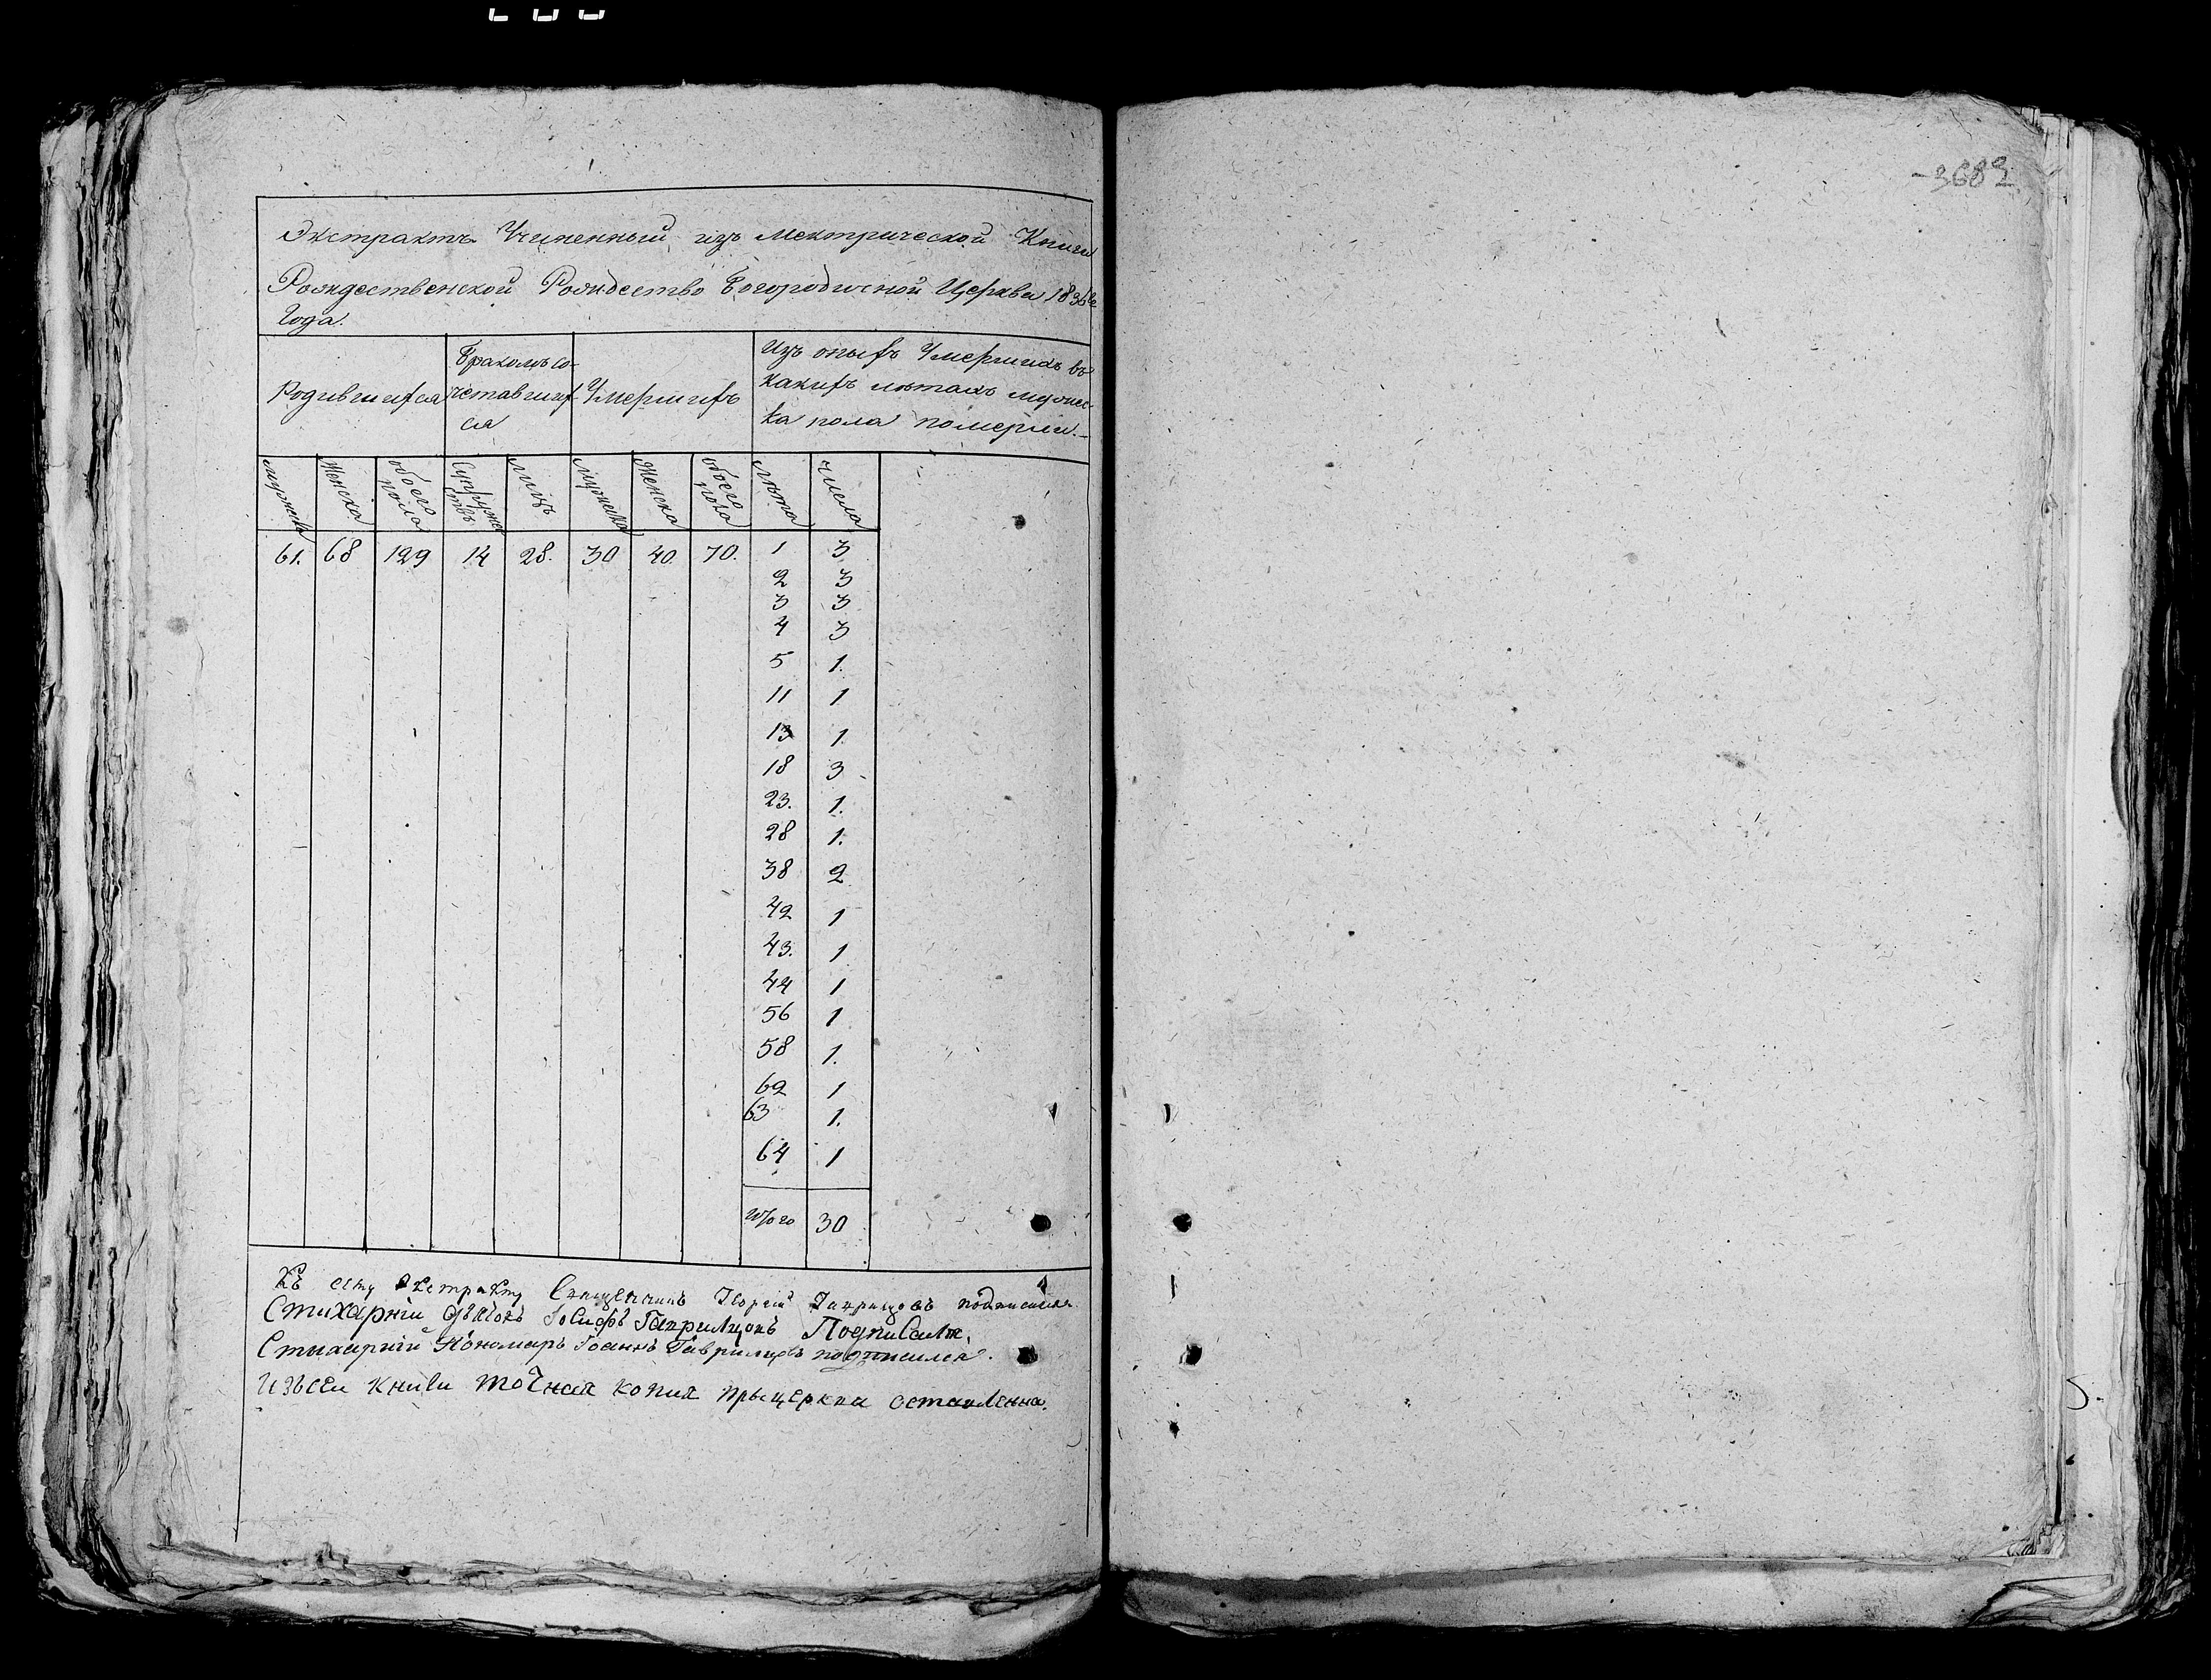 -3682
Экстрактъ Учиненный изъ Мектрической Книги
Рождественской Рождество Богородичной Церкви 1836го
Года.
Родившихся
Бракомъ со-
четавших
ся
Умершихъ
Изъ оныхъ Умершихъ въ
какихъ летахъ мужес-
ка пола померли.
мужеска Женска обоего пола Супружествъ лицъ мужеска Женска обоего пола лѣта числа
61. 68 129 14 28. 30 40. 70. 1 3
2 3
3 3
4 3
5 1.
11 1
13 1.
18 3
23. 1.
28 1.
38 2
42 1
43. 1
44 1
56 1
58 1.
62 1
63 1.
64 1
Итого 30
Къ сему Экстракту Священникъ Георгій подписался
Стихарнїи Дьякъ Іосифъ Гаврилцовъ Подписалъ,
Стихарній Пономаръ Іоаннъ Гаврилцовъ подписался.
Изъсеи книги точная копия прыцеркви оставленна.